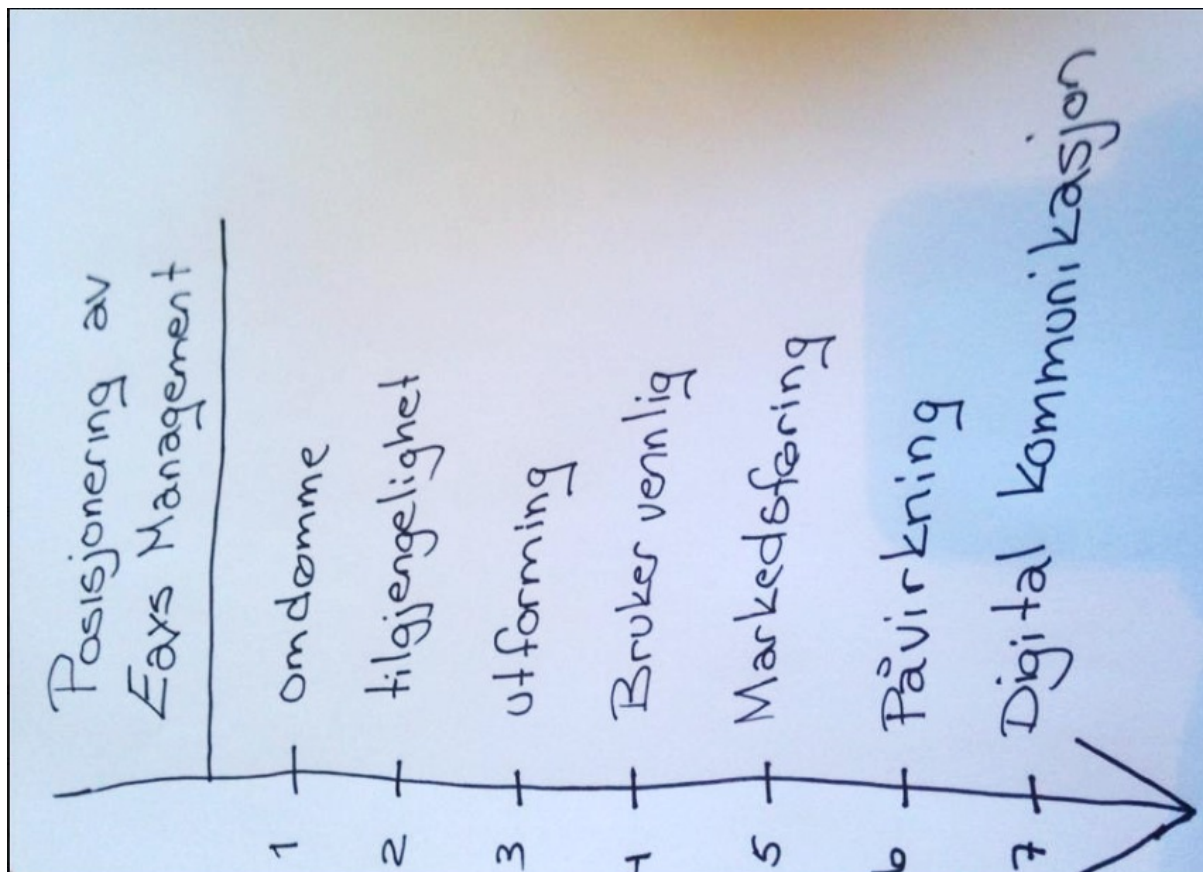 Posisjonering av
Eaxs Management
1 omdømme
2 tilgjengelighet
3 utforming
4 Bruker vennlig
5 Markedsføring
6 Påvirkning
7 Digital kommunikasjon